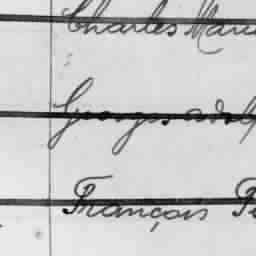 Charles Mari
Georges Adolp
François